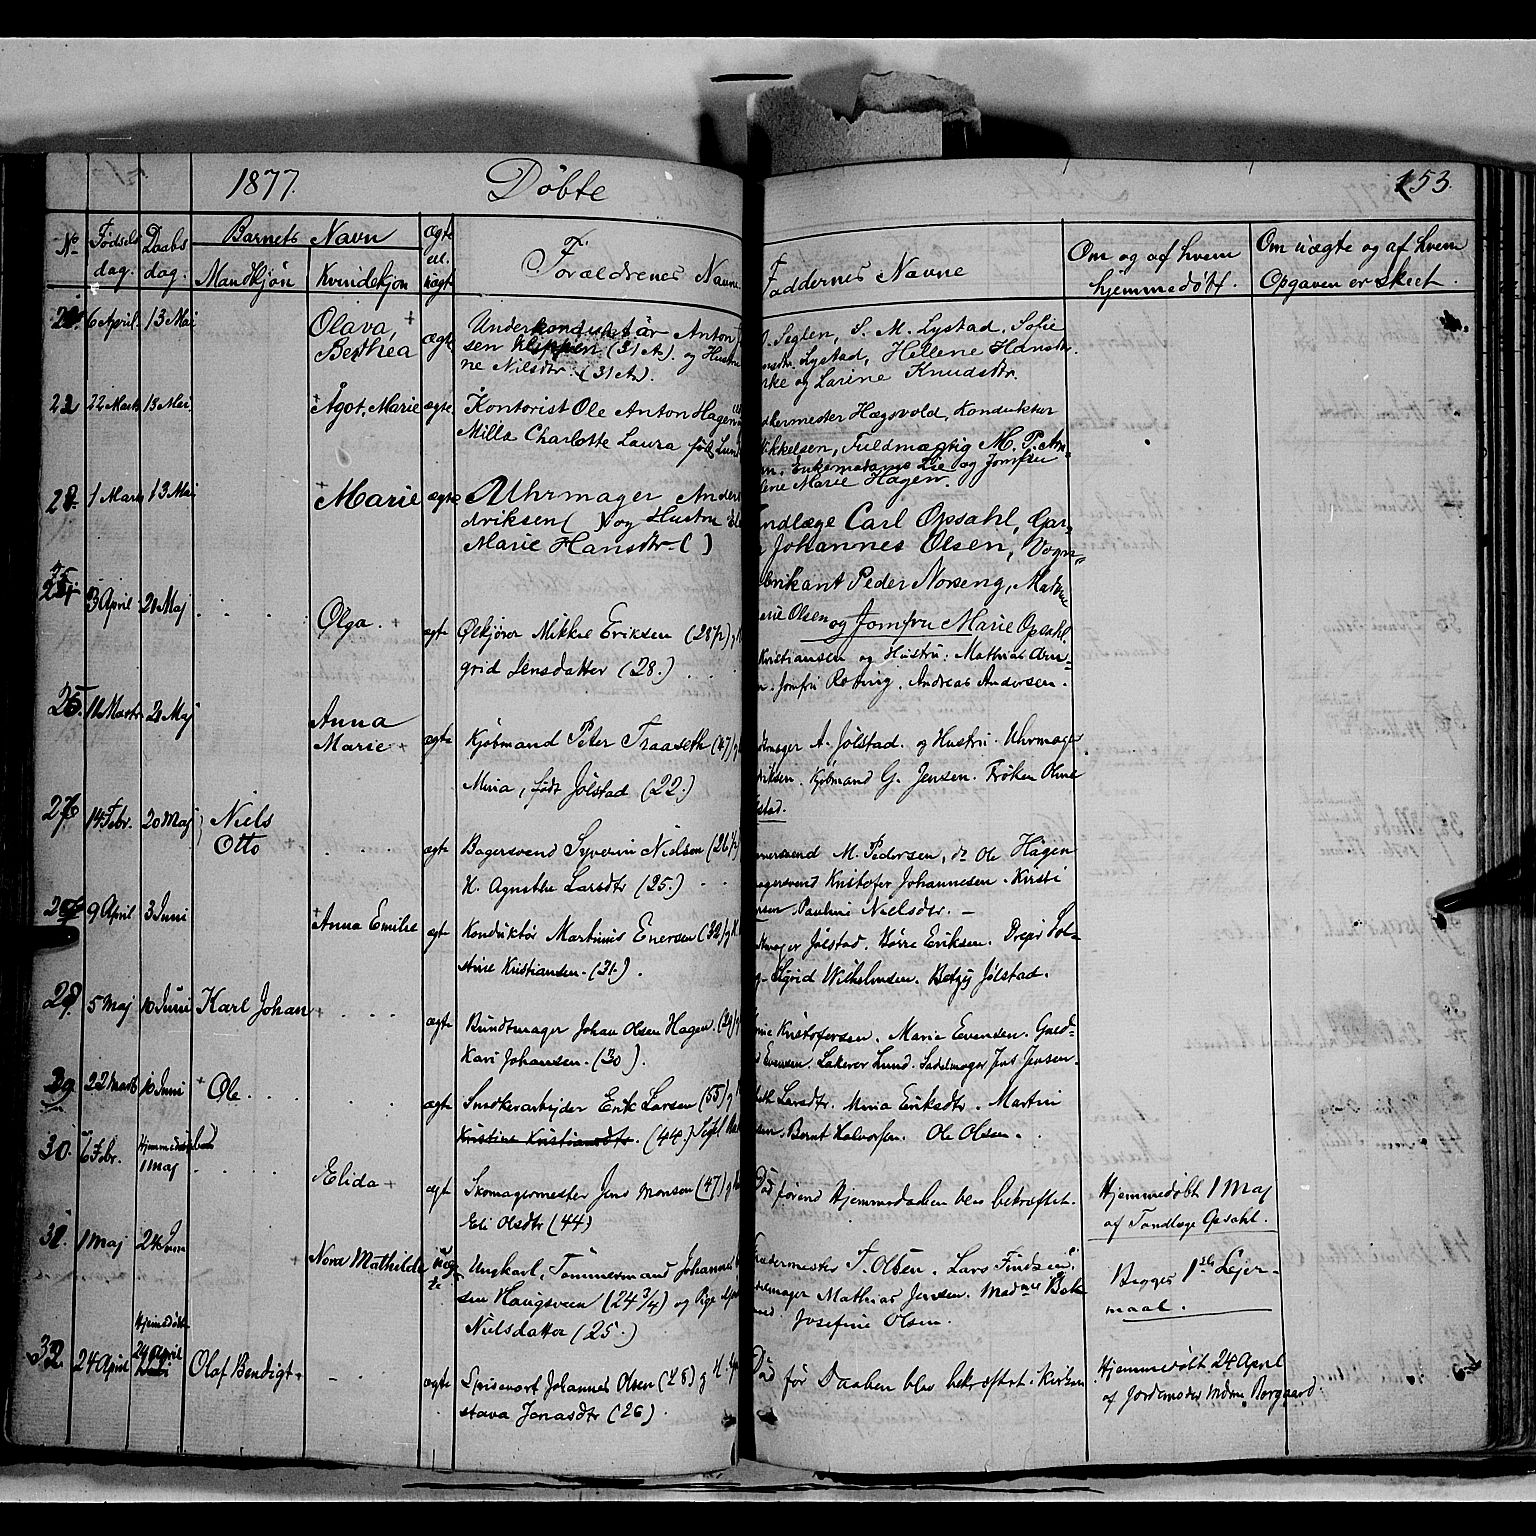 1877. Døbte 153.
No Fødsels dag. Daabs dag. Barnets Navn Mandkjøn Kvindekjøn ægte el. uægte Forældrenes Navne
Faddernes Navne Om og af hvem hjemmedøbt. Om uægte og af hvem Opgaven er skeet.
6 April. 13 Mai Olava, Berthea ægte Underkonduktør Anton
sen Klippen (31 A). og Hustru
ne Nilsdtr. (31 A).
Seglen, S. M. Lystad, Sofie
Lystad, Hellene Hansdtr.
og Larine Knudsdtr.
22 22 Marts 13 Mai Ågot, Marie ægte Kontorist Ole Anton Hagen
Milla Charlotte Laura født Lund
Hægsvold, Konduktør
Mikkelsen, Fuldmægtig M. P. Am-
Enkemadame Lie og Jomfru
Marie Hagen.
1 Marts 13 Mai Marie ægte Uhrmager Anders
driksen ( ) og Hustru
Marie Hansdtr. ( )
Tandlæge Carl Opsahl, Gar-
Johannes Olsen, Vogn-
fabrikant Peder Noreng, Madme
Olsen og Jomfru Marie Opsahl.
3 April 20 Maj Olga. ægte Ølkjører Mikkel Eriksen (28 1/2)
grid Jensdatter (28.)
Kristiansen og Hustru. Mathias
Jomfru Roting. Andreas Andersen.
25. Marts 20 Maj Anna Marie ægte Kjøbmand Peter Traaseth (47)
Mina, født Jølstad (22.)
A. Jølstad. og Hustru. Uhrmager
Kjøbmand G. Jensen. Frøken Oline
stad.
14 Febr. 20 Maj Niels Otto ægte Bagersvend Syverin Nielsen (26 1/2)
H. Agnethe Larsdtr (25.)
M. Pedersen, do Ole Hagen
Bagersvend Kristofer Johannesen. Kirsti
Pauline Nielsdtr. -
9 April 3 Juni Anna Emilie ægte Konduktør Martinus Enersen (32)
Kristiansen. (31.)
Jølstad. Børre Eriksen.
Sigrid Wilhelmsen. Betzy Jølstad.
5 Maj 10 Juni Karl Johan ægte Bundtmager Johan Olsen Hagen. (29)
Kari Johansen. (30).
Kristofersen. Marie Evensen. Guld-
Evensen. Lakerer Lund. Sadelmager Jens Jensen.
29 22 Marts 10 Juni Ole ægte Snedkerarbejder Erik Larsen (55)
Kristine Kristiansdtr. (44.)
Larsdtr. Mina Eriksdtr. Martin
Bernt Halvorsen. Ole Olsen.
30. 6 Febr. 1 Maj Elida ægte Skomagermester Jens Monsen (47)
Eli Olsdtr (44)
Død førend Hjemmedaaben blev bekræftet. Hjemmedøbt 1 Maj
af Tandlæge Opsahl.
31. 1 Maj 24 Juni Nora Mathilde uægte Ungkarl, Tømmermand Johannes
sen Haugsveen (24 3/4) og Pige
Nielsdatter (25.)
T. Olsen. Lars Findsen.
Mathias Jensen. Madme
Josefine Olsen.
Begges 1ste Lejer-
maal.
32. 24 April Hjemmedøbt 24 April Olaf Bendigt ægte Spisevert Johannes Olsen (28) og H.
stava Jonasdtr (26).
Død før Daaben blev bekræftet i Kirken Hjemmedøbt 24 April
af Jordemoder Mdme Borgaard.